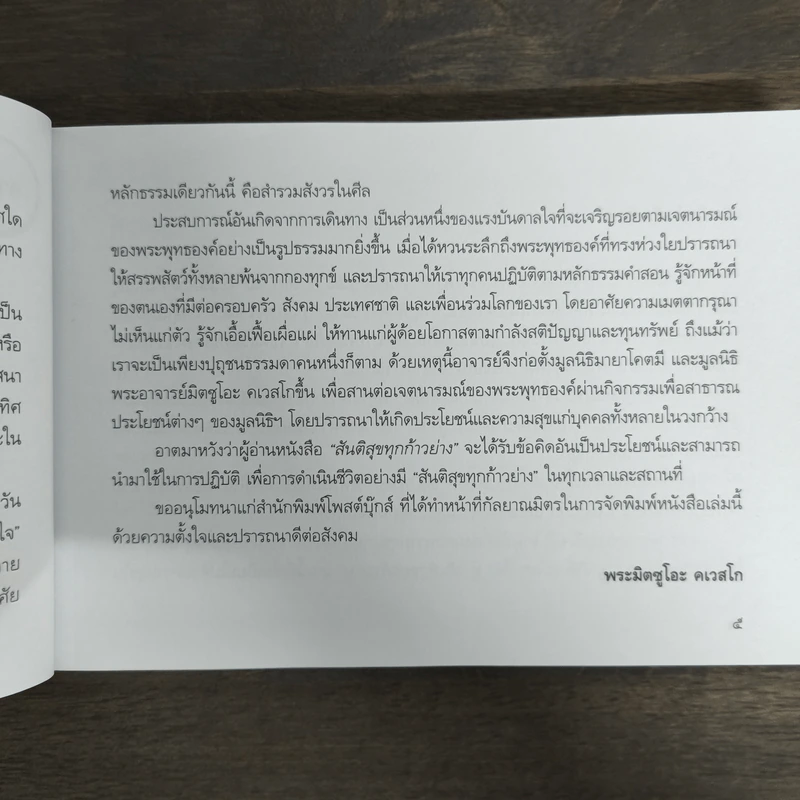 ใด
ทาง
เป็น
หรือ
สนา
ทิศ
ใน
วัน
ใจ”
าย
ศัย
หลักธรรมเดียวกันนี้ คือสำรวมสังวรในศีล
ประสบการณ์อันเกิดจากการเดินทาง เป็นส่วนหนึ่งของแรงบันดาลใจที่จะเจริญรอยตามเจตนารมณ์
ของพระพุทธองค์อย่างเป็นรูปธรรมมากยิ่งขึ้น เมื่อได้หวนระลึกถึงพระพุทธองค์ที่ทรงห่วงใยปรารถนา
ให้สรรพสัตว์ทั้งหลายพ้นจากกองทุกข์ และปรารถนาให้เราทุกคนปฏิบัติตามหลักธรรมคำสอน รู้จักหน้าที่
ของตนเองที่มีต่อครอบครัว สังคม ประเทศชาติ และเพื่อนร่วมโลกของเรา โดยอาศัยความเมตตากรุณา
ไม่เห็นแก่ตัว รู้จักเอื้อเฟื้อเผื่อแผ่ ให้ทานแก่ผู้ด้อยโอกาสตามกำลังสติปัญญาและทุนทรัพย์ ถึงแม้ว่า
เราจะเป็นเพียงปุถุชนธรรมดาคนหนึ่งก็ตาม ด้วยเหตุนี้อาจารย์จึงก่อตั้งมูลนิธิมายาโคตมี และมูลนิธิ
พระอาจารย์มิตซูโอะ คเวสโกขึ้น เพื่อสานต่อเจตนารมณ์ของพระพุทธองค์ผ่านกิจกรรมเพื่อสาธารณ
ประโยชน์ต่างๆ ของมูลนิธิฯ โดยปรารถนาให้เกิดประโยชน์และความสุขแก่บุคคลทั้งหลายในวงกว้าง
อาตมาหวังว่าผู้อ่านหนังสือ “สันติสุขทุกก้าวย่าง” จะได้รับข้อคิดอันเป็นประโยชน์และสามารถ
นำมาใช้ในการปฏิบัติ เพื่อการดำเนินชีวิตอย่างมี “สันติสุขทุกก้าวย่าง” ในทุกเวลาและสถานที่
ขออนุโมทนาแก่สำนักพิมพ์โพสต์บุ๊กส์ ที่ได้ทำหน้าที่กัลยาณมิตรในการจัดพิมพ์หนังสือเล่มนี้
ด้วยความตั้งใจและปรารถนาดีต่อสังคม
พระมิตซูโอะ คเวสโก
๕